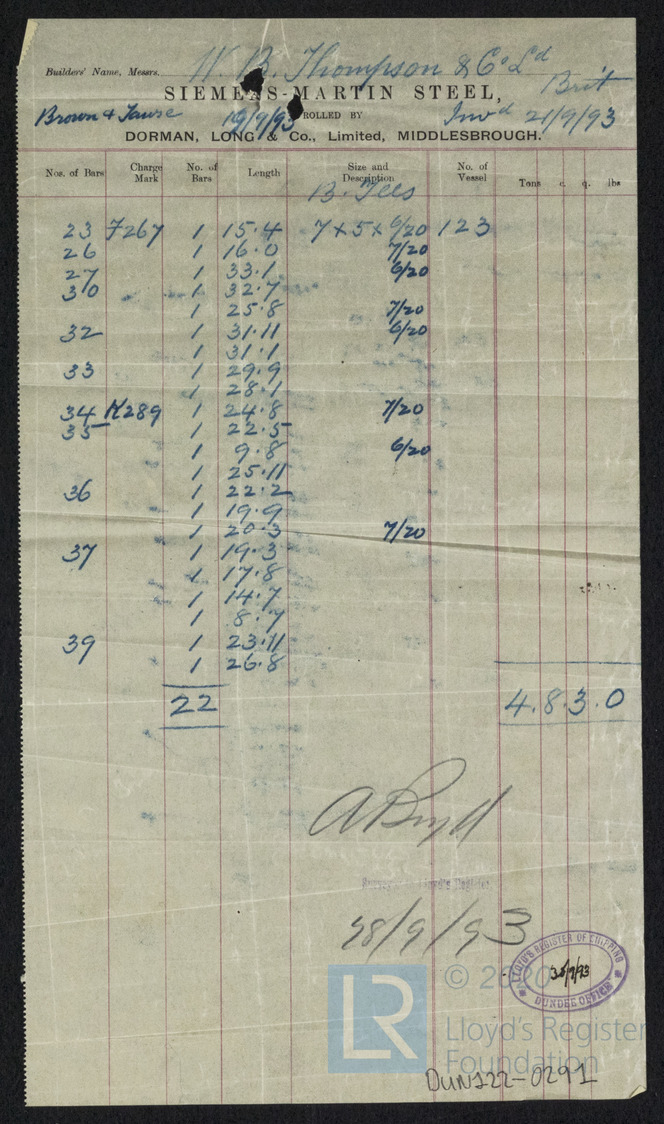 Builders' Name, Messrs. W. B. Thompson & Co Ld
Brit
SIEMENS-MARTIN STEEL,
Brown & Tawse 19/9/93 ROLLED BY Invd 21/9/93
DORMAN, LONG & Co., Limited, MIDDLESBROUGH.
Nos. of Bars Charge Mark No. of Bars Length Size and Description No. of Vessel Tons c. q. lbs
B. Tees
23 F267 1 15.4 7 x 5 x 6/20 123
26 1 16.0 7/20
27 1 33.1 6/20
30 1 32.7
1 25.8 7/20
32 1 31.11 6/20
1 31.1
33 1 29.9
1 28.1
34 K289 1 24.8 7/20
35 1 22.5
1 9.8 6/20
1 25.11
36 1 22.2
1 19.9
1 20.3 7/20
37 1 19.3
1 17.8
1 14.7
1 8.7
39 1 23.11
1 26.8
22 4.8.3.0
Surveyor to Lloyd's Register
28/9/93
LLOYD'S REGISTER OF SHIPPING
DUNDEE OFFICE
LR © 2020
Lloyd's Register
Foundation
DUN122-0291